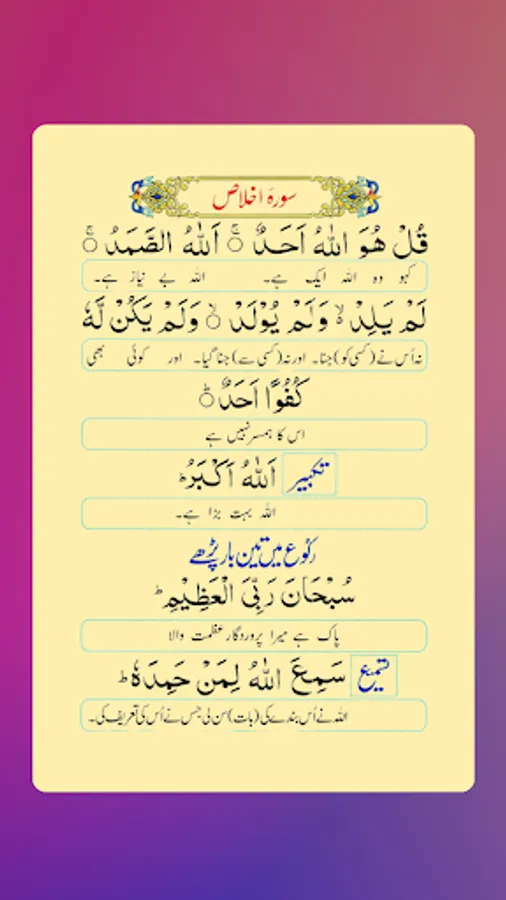 سورۂ اخلاص
قُلْ هُوَ اللّٰهُ اَحَدٌ ۚ اَللّٰهُ الصَّمَدُ ۚ
کہو وہ اللہ ایک ہے۔ اللہ بے نیاز ہے۔
لَمْ يَلِدْ ۙ وَلَمْ يُوْلَدْ ۙ وَلَمْ يَكُنْ لَّهٗ
نہ اُس نے (کسی کو) جنا۔ اور نہ (کسی سے) جنا گیا۔ اور کوئی بھی
كُفُوًا اَحَدٌ ؕ
اس کا ہمسر نہیں ہے
تکبیر اَللّٰهُ اَكْبَرُ ؕ
اللہ بہت بڑا ہے۔
رکوع میں تین بار پڑھے
سُبْحَانَ رَبِّىَ الْعَظِيْمِ ؕ
پاک ہے میرا پروردگار عظمت والا
تسمیع سَمِعَ اللّٰهُ لِمَنْ حَمِدَهٗ ؕ
اللہ نے اُس بندے کی (بات) سن لی جس نے اُس کی تعریف کی۔